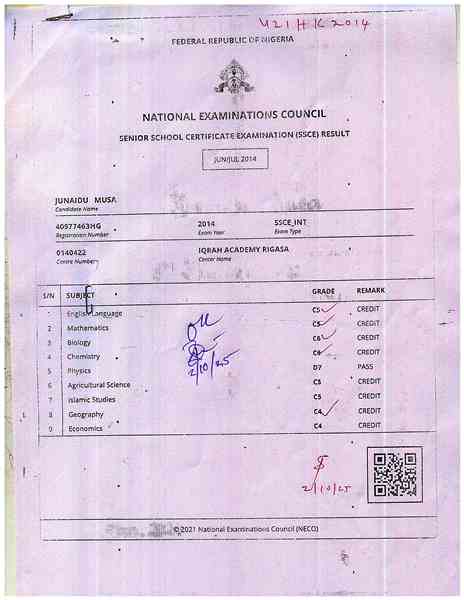 U21HK2014
FEDERAL REPUBLIC OF NIGERIA
NATIONAL EXAMINATIONS COUNCIL
SENIOR SCHOOL CERTIFICATE EXAMINATION (SSCE) RESULT
JUN/JUL 2014
JUNAIDU MUSA
Candidate Name
40977463HG 2014 SSCE_INT
Registration Number Exam Year Exam Type
0140422 IQRAH ACADEMY RIGASA
Centre Number Center Name
S/N SUBJECT GRADE REMARK
1 English Language C5 CREDIT
2 Mathematics C5 CREDIT
3 Biology C6 CREDIT
4 Chemistry C6 CREDIT
5 Physics D7 PASS
6 Agricultural Science C5 CREDIT
7 Islamic Studies C5 CREDIT
8 Geography C4 CREDIT
9 Economics C4 CREDIT
2/10/25
2/10/25
© 2021 National Examinations Council (NECO)